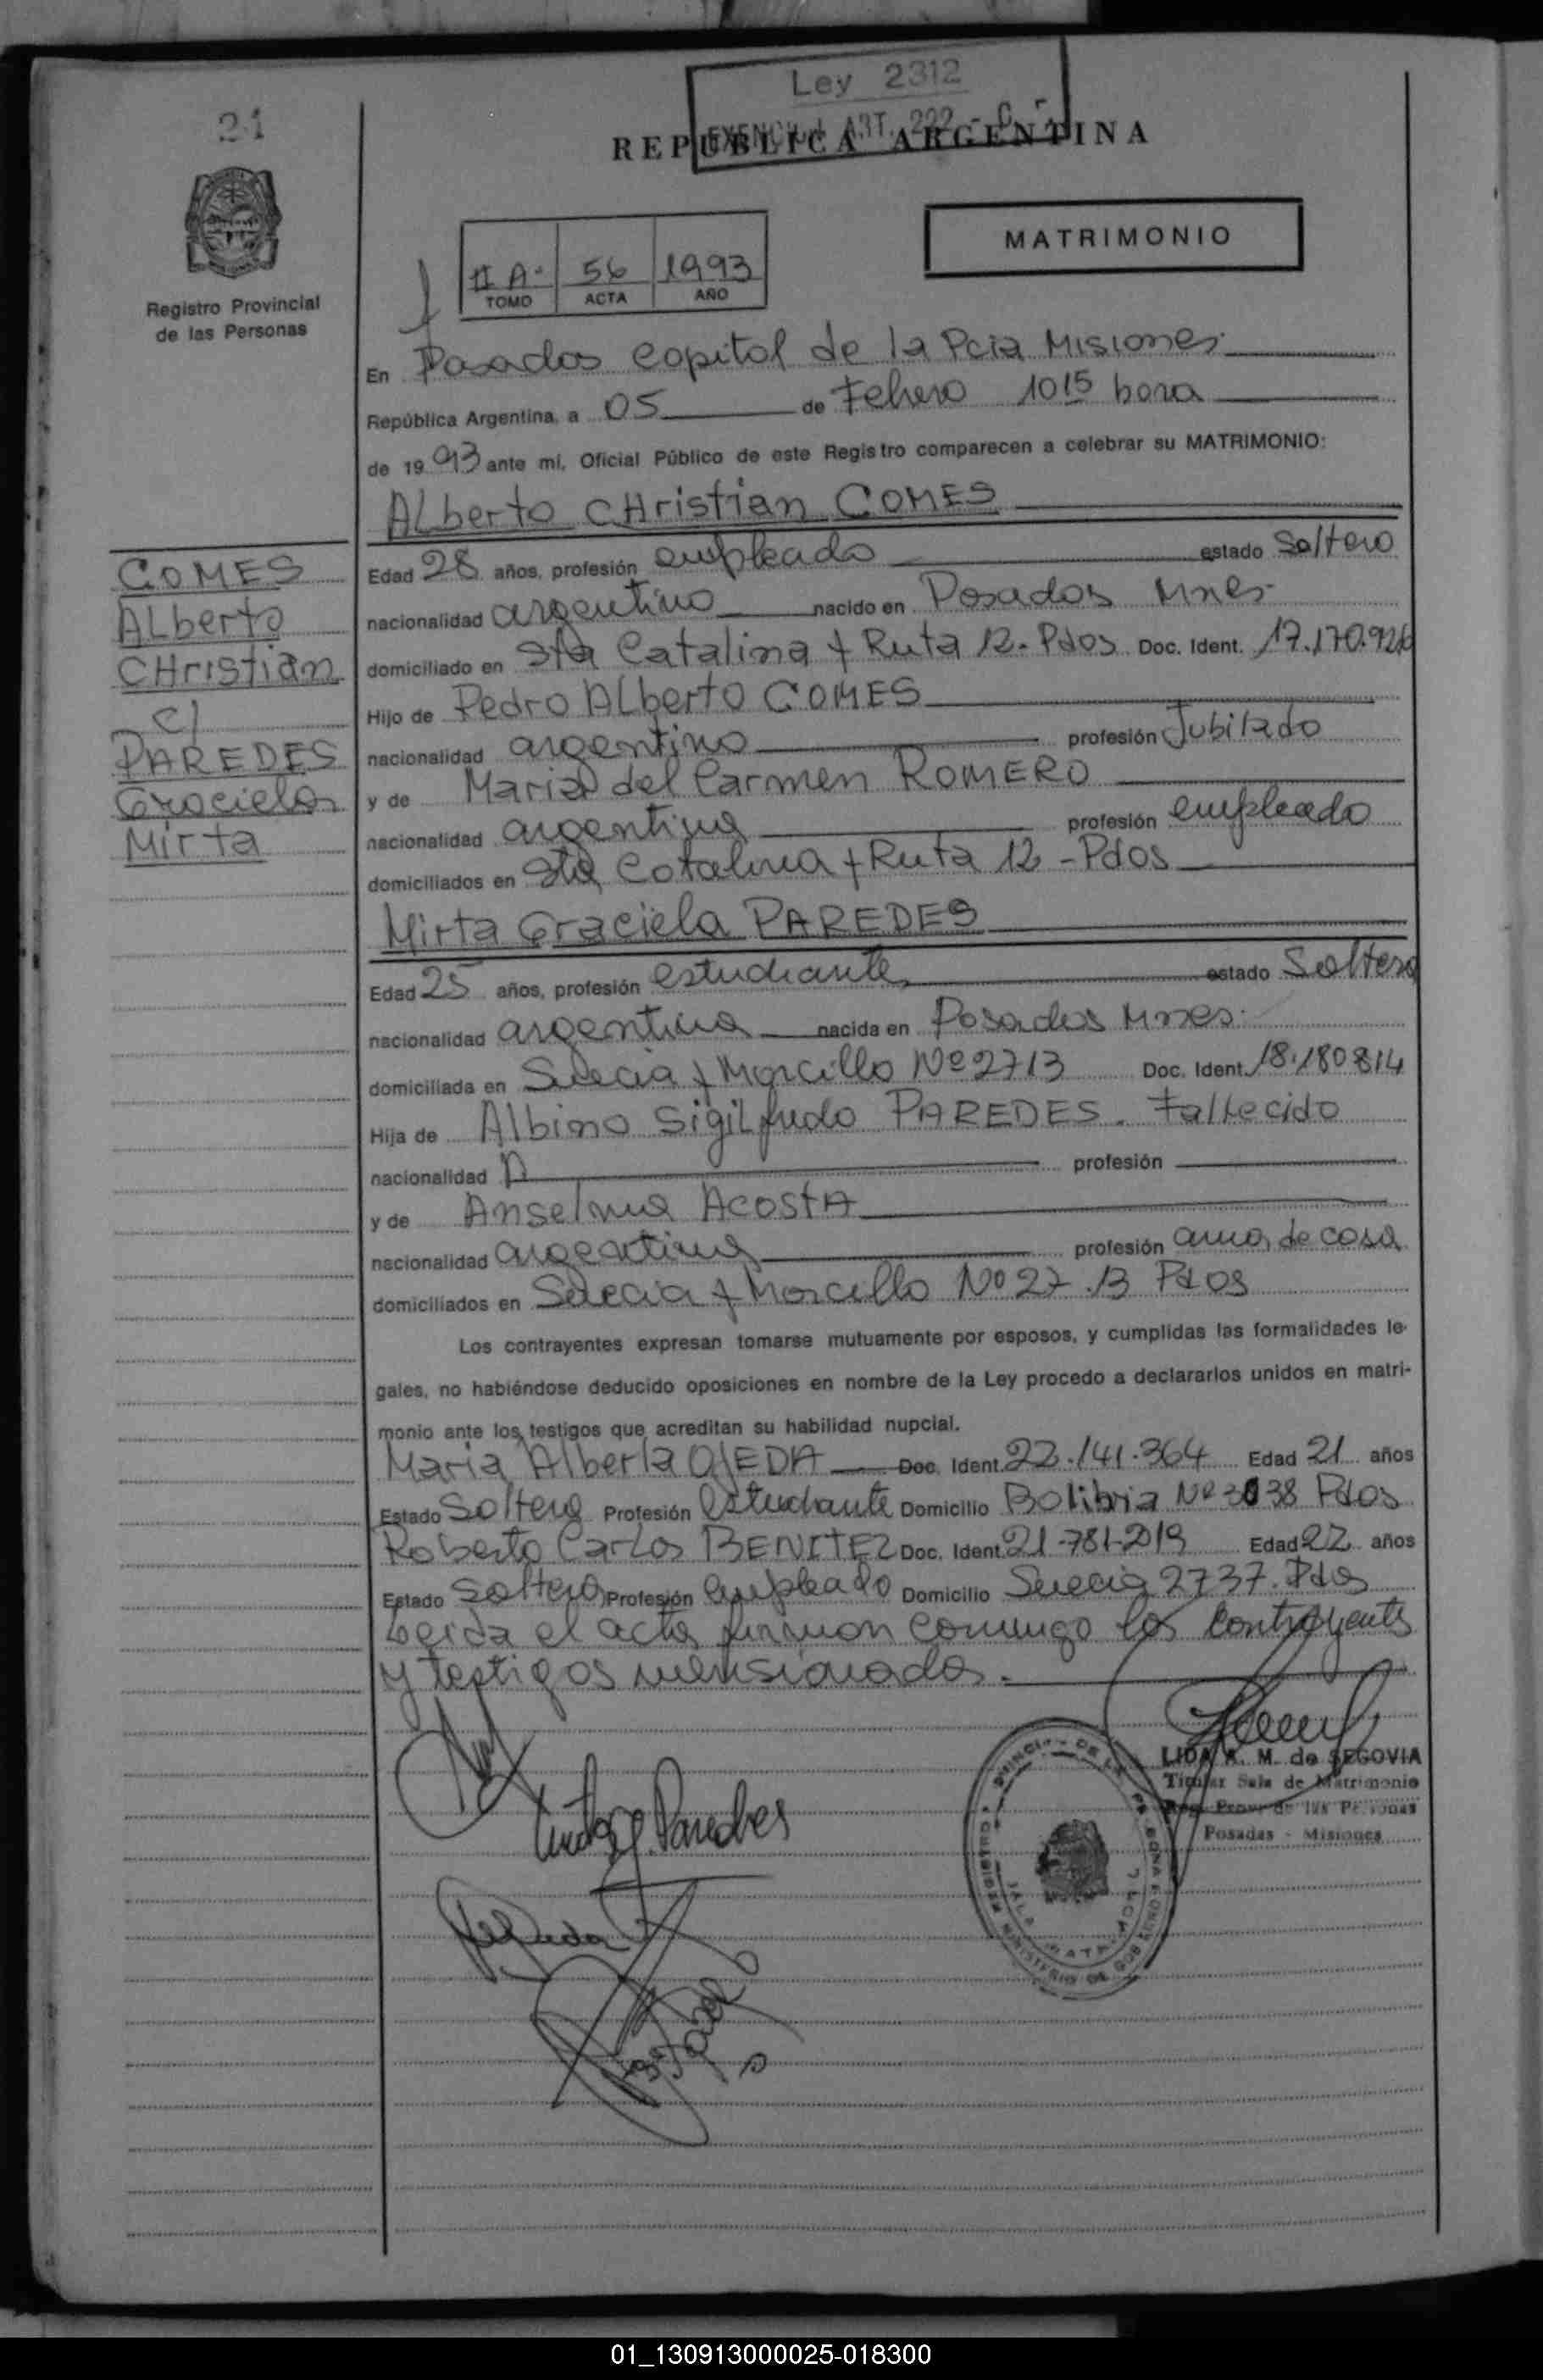 Ley 2312
EXENCION ART. 222 - C. F
21
REPUBLICA ARGENTINA
MATRIMONIO
II A. 56 1993
TOMO ACTA AÑO
Registro Provincial
de las Personas
En Posadas Capital de la Pcia Misiones
República Argentina, a 05 de Febrero 10 15 hora
de 1993 ante mí, Oficial Público de este Registro comparecen a celebrar su MATRIMONIO:
ALberto CHristian COMES
COMES
ALberto
CHristian
c/
PAREDES
Graciela
Mirta
Edad 28 años, profesión empleado estado Soltero
nacionalidad argentino nacido en Posadas Mnes
domiciliado en Sta Catalina y Ruta 12. Pdas Doc. Ident. 17.170.926
Hijo de Pedro ALberto COMES
nacionalidad argentino profesión Jubilado
y de Maria del Carmen ROMERO
nacionalidad argentina profesión empleada
domiciliados en Sta Catalina y Ruta 12 - Pdas
Mirta Graciela PAREDES
Edad 25 años, profesión estudiante estado Soltera
nacionalidad argentina nacida en Posadas Mnes.
domiciliada en Suecia y Morcillo Nº 2713 Doc. Ident. 18.180814
Hija de Albino SigiLfredo PAREDES. Fallecido
nacionalidad profesión
y de Anselma AcostA
nacionalidad argentina profesión ama de casa
domiciliados en Suecia y Morcillo Nº 27 13 Pdas
Los contrayentes expresan tomarse mutuamente por esposos, y cumplidas las formalidades le-
gales, no habiéndose deducido oposiciones en nombre de la Ley procedo a declararlos unidos en matri-
monio ante los testigos que acreditan su habilidad nupcial.
Maria Alberta OJEDA Doc. Ident. 22.141.364 Edad 21 años
Estado Soltera Profesión estudiante Domicilio Bolibria Nº 3038 Pdas
Roberto Carlos BENITEZ Doc. Ident. 21-781-219 Edad 22 años
Estado Soltero Profesión empleado Domicilio Suecia 2737. Pdas
Leida el acta firman conmigo los contrayentes
y testigos mensionados.
LIDA A. M. de SEGOVIA
Titular Sala de Matrimonio
Reg. Prov. de las Personas
Posadas - Misiones
Mirta G. Paredes
01_130913000025-018300